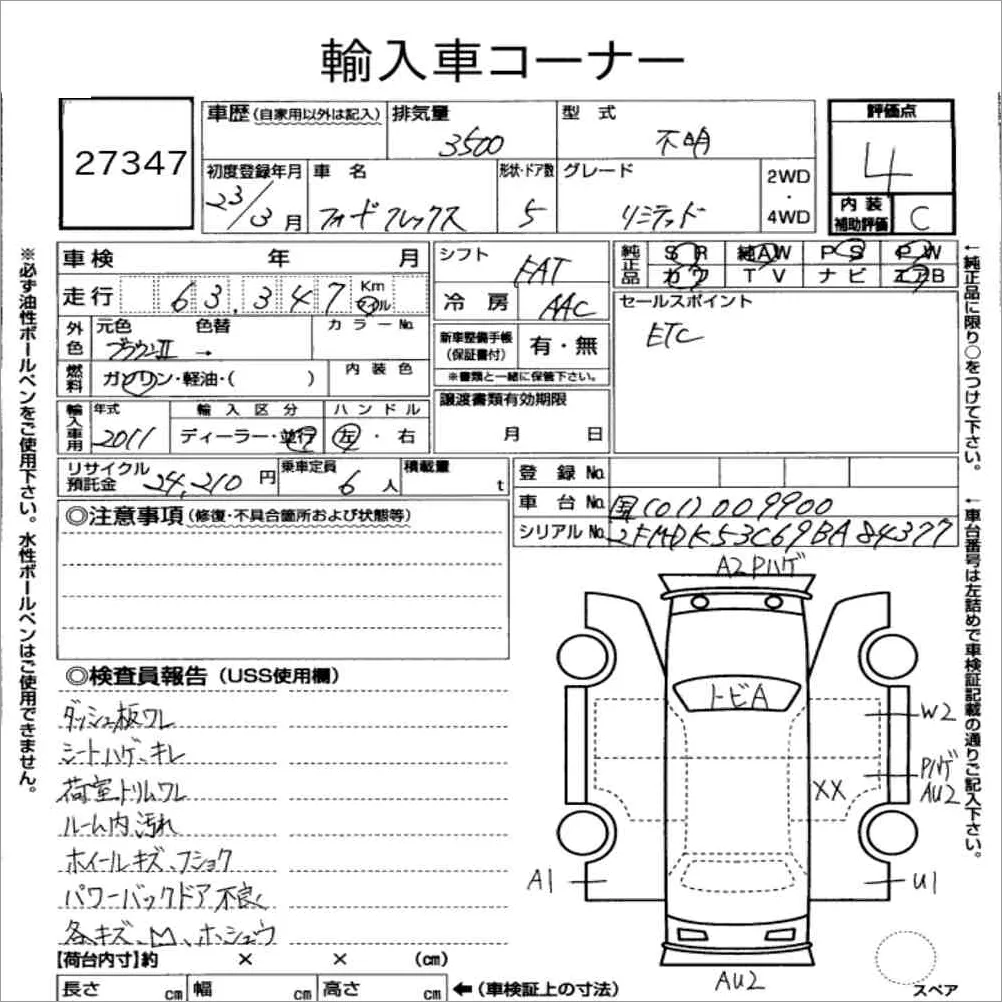 輸入車コーナー
27347
車歴(自家用以外は記入)
排気量
3500
型式
不明
評価点
4
初度登録年月
23/3月
車名
フォード フレックス
形状・ドア数
5
グレード
リミテッド
2WD
・
4WD
内装
補助評価
C
車検 年 月
走行 63,347 Km マイル
外色
元色 色替
ブラウンII →
カラーNo.
燃料
ガソリン・軽油・( )
内装色
輸入車用
年式
2011
輸入区分
ディーラー・並行
ハンドル
左・右
リサイクル預託金
24,210円
乗車定員
6人
積載量
t
シフト
FAT
冷房
AAC
新車整備手帳
(保証書付)
有・無
※書類と一緒に保管下さい。
譲渡書類有効期限
月 日
純正品
SR 純AW PS PW
カワ TV ナビ エアB
セールスポイント
ETC
登録No.
車台No. 国[01]009900
シリアルNo. 2FMDK53C69BA84377
◎注意事項(修復・不具合箇所および状態等)
◎検査員報告(USS使用欄)
ダッシュ板ワレ
シートハゲ、キレ
荷室トリムワレ
ルーム内汚れ
ホイールキズ、フショク
パワーバックドア不良く
各キズ、凹、ホシュウ
A2 Pハゲ
トビA
W2
Pハゲ
AU2
XX
A1
U1
AU2
スペア
【荷台内寸】約 × × (cm)
長さ cm 幅 cm 高さ cm
←(車検証上の寸法)
※必ず油性ボールペンをご使用下さい。水性ボールペンはご使用できません。
←純正品に限り○をつけて下さい。
←車台番号は左詰めで車検証記載の通りご記入下さい。